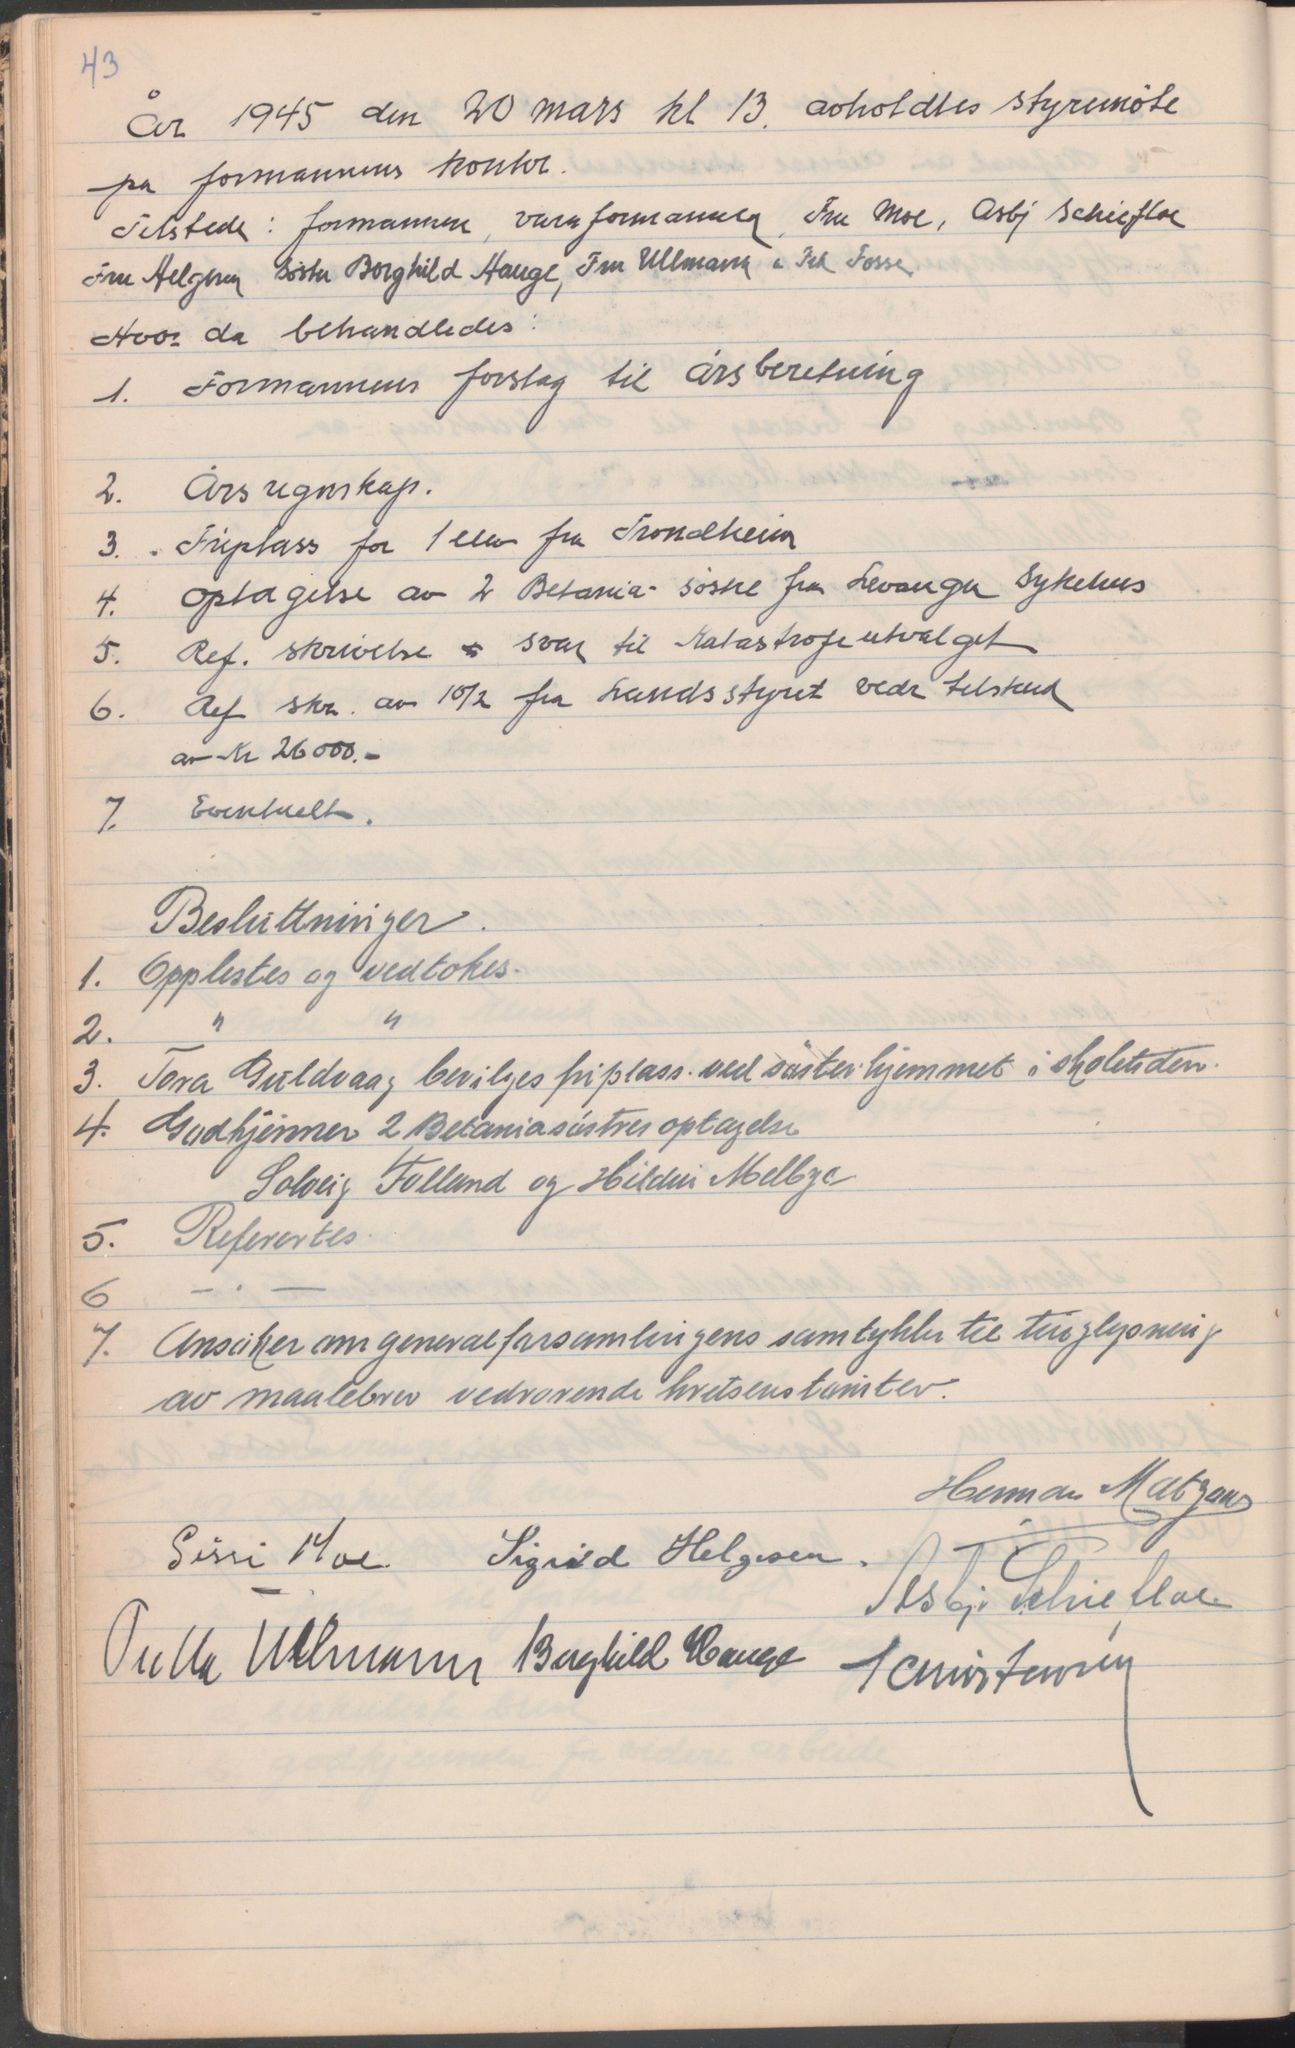 43
År 1945 den 20 mars kl 13. avholdtes styremöte
på formannens kontor.
Tilstede: formannen, varaformannen, Fru Moe, Asbj Schiefloe
Fru Helgesen söster Borghild Hauge, Fru Ullmann & Frk Fosse.
Hvor da behandledes:
1. Formannens forslag til årsberetning
2. Årsregnskap.
3. Friplass for 1 elev fra Trondheim
4. optagelse av 2 Betania-söstre fra Levanger Sykehus
5. Ref. skrivelse & svar til Katastrofeutvalget
6. Ref skr. av 10/2 fra Landsstyret vedr tilskud
av Kr 26000.-
7. Eventuelt.
Besluttninger.
1. Opplestes og vedtokes.
2. " "
3. Tora Guldvaag bevilges friplass ved søsterhjemmet i skoletiden.
4. Godkjenner 2 Betaniasøstres optagelse
Solveig Folland og Hildur Melbye
5. Referertes.
6 — . —
7. Ansøker om generalforsamlingens samtykke til tinglysning
av maalebrev vedrørende kretsens tomter.
Herman Matzow
Sissi Moe. Sigrid Helgesen.
Asbj. Schiefloe
Tulla Ullmann Borghild Hauge